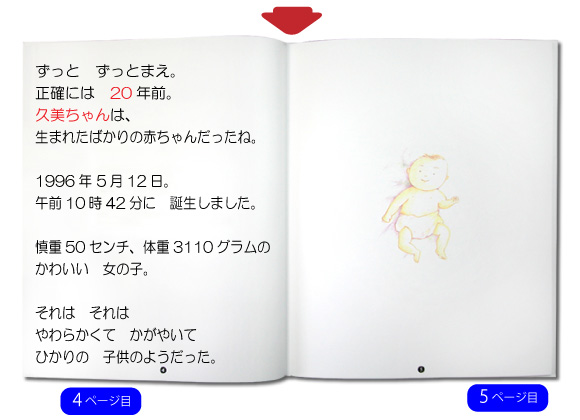 ずっと　ずっとまえ。
正確には　20年前。
久美ちゃんは、
生まれたばかりの赤ちゃんだったね。
1996年5月12日。
午前10時42分に　誕生しました。
慎重50センチ、体重3110グラムの
かわいい　女の子。
それは　それは
やわらかくて　かがやいて
ひかりの　子供のようだった。
4
5
4ページ目
5ページ目